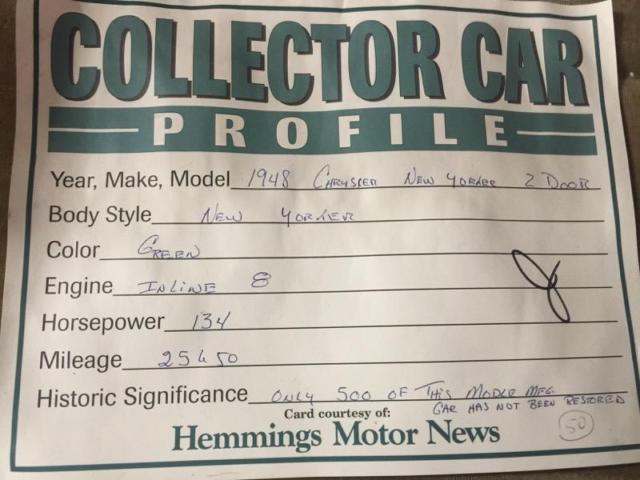 COLLECTOR CAR
PROFILE
Year, Make, Model 1948 CHRYSLER NEW YORKER 2 DOOR
Body Style NEW YORKER
Color GREEN
Engine INLINE 8
Horsepower 134
Mileage 25450
Historic Significance ONLY 500 OF THIS MODLE MFG
CAR HAS NOT BEEN RESTORED
Card courtesy of:
50
Hemmings Motor News